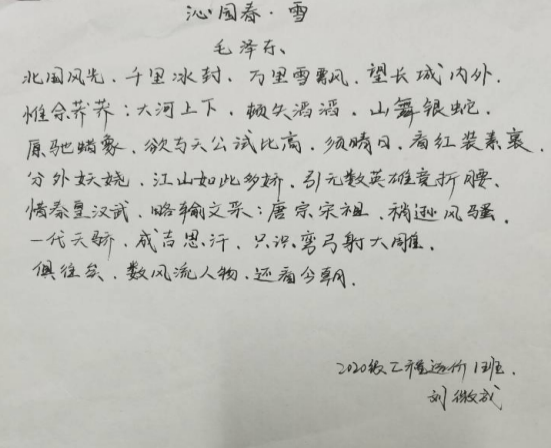 沁园春·雪
毛泽东、
北国风光,千里冰封、万里雪飘,望长城内外,
惟余莽莽;大河上下,顿失滔滔,山舞银蛇,
原驰蜡象,欲与天公试比高,须晴日,看红装素裹,
分外妖娆,江山如此多娇,引无数英雄竞折腰,
惜秦皇汉武,略输文采;唐宗宋祖,稍逊风骚,
一代天骄,成吉思汗,只识弯弓射大雕,
俱往矣,数风流人物,还看今朝.
2020级工程造价1班.
刘微成